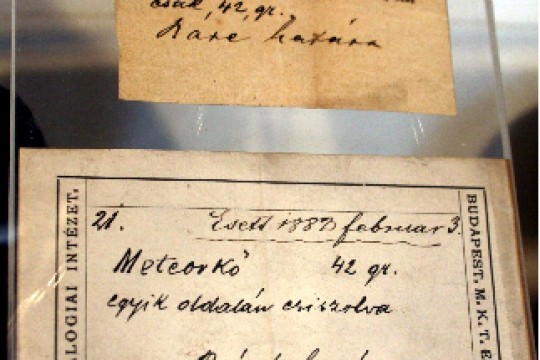 csak, 42 gr.
határa
ALOGIAI INTÉZET.
21. Esett 1883 februar 3.
Meteorkő 42 gr.
egyik oldalán csiszolva
BUDAPEST. M. K. T. E